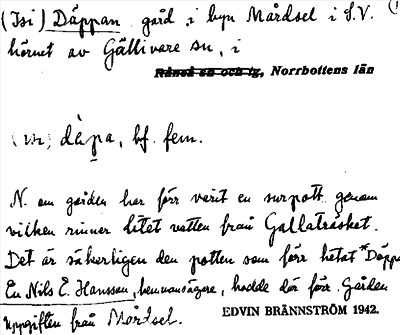 (Isi) Däppan gård i byn Mårdsel i S.V.
hörnet av Gällivare sn, i
Råneå sn och tg, Norrbottens län
dàpa, bf. fem.
N. om gården har förr varit en surpott genom
vilken rinner litet vatten från Gallaträsket.
Det är säkerligen den potten som förr hetat *Däppa
En Nils E. Hansson, hemmansägare, hadde där förr gården
uppgiften från Mårdsel.
EDVIN BRÄNNSTRÖM 1942.